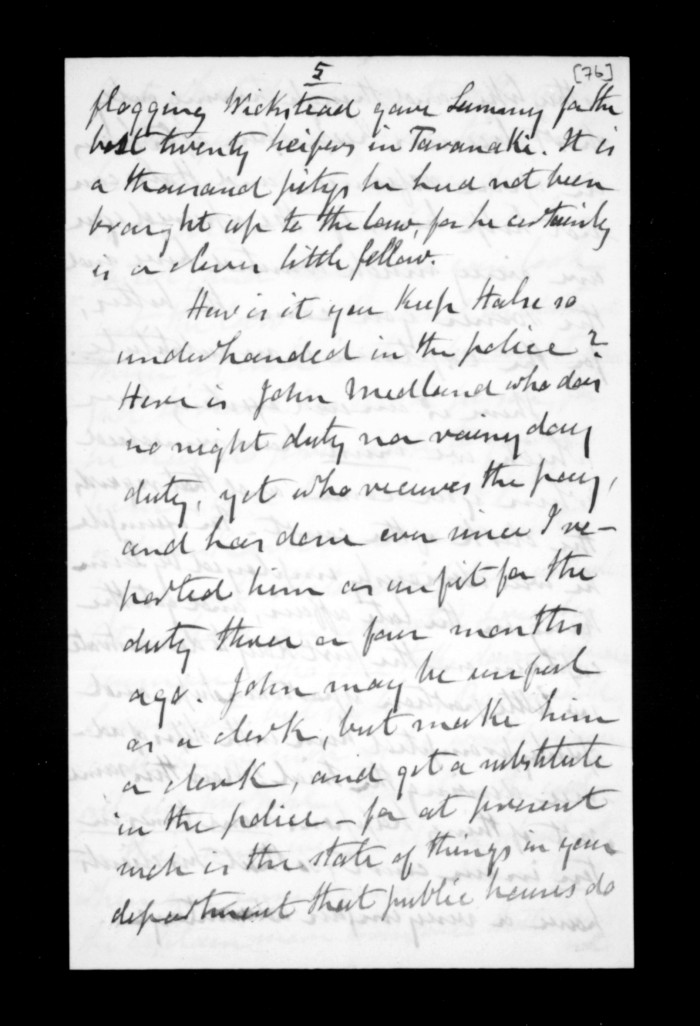 5
[76]
flogging Wickstead gave Sammy for the
best twenty heifers in Taranaki. It is
a thousand pitys he had not been
brought up to the law, for he certainly
is a clever little fellow.
How is it you keep Halse so
underhanded in the police?
Here is John Medland who does
no night duty nor rainy day
duty, yet who receives the pay,
and has done ever since I re-
ported him as unfit for the
duty three or four months
ago. John may be useful
as a clerk, but make him
a clerk, and get a substitute
in the police – for at present
such is the state of things in your
department that public houses do